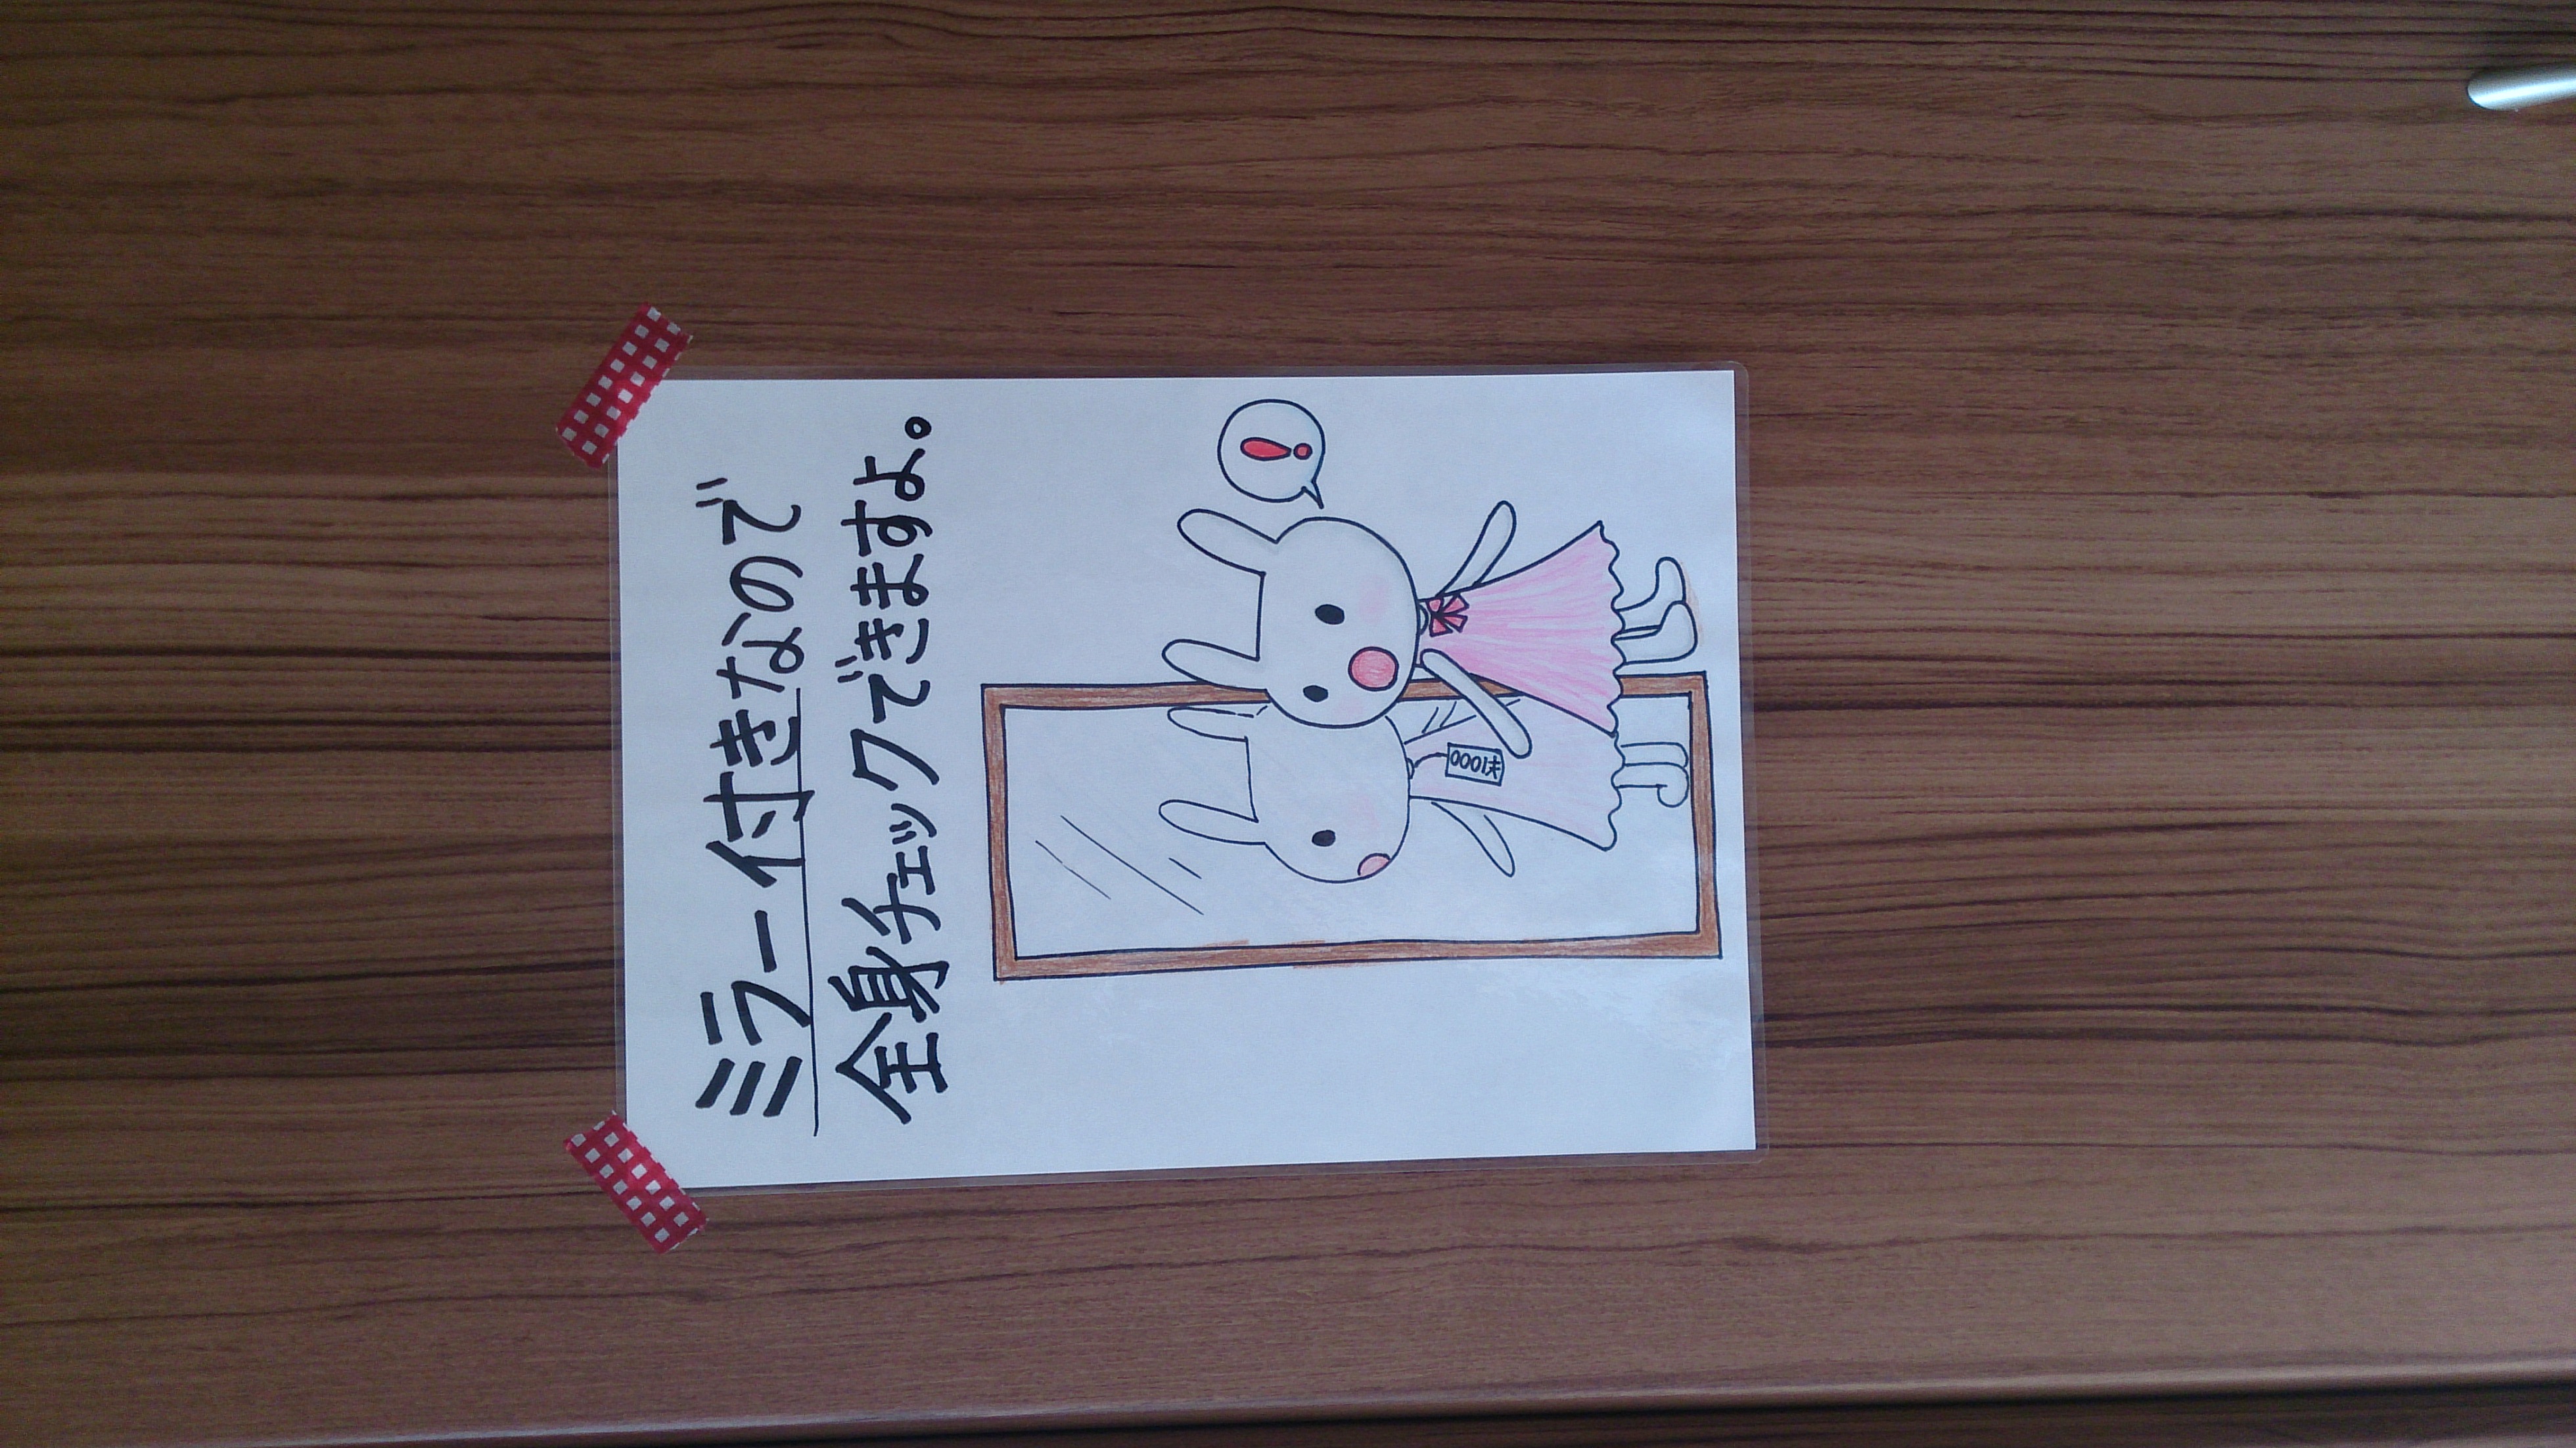 ミラー付きなので
全身チェックできますよ。
!
¥1000